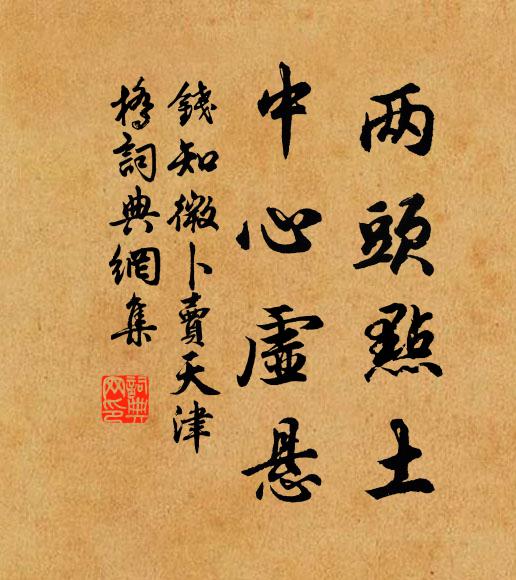 两頭點土
中心虛懸
錢知微卜賣天津
橋詞典網集
詞典网印